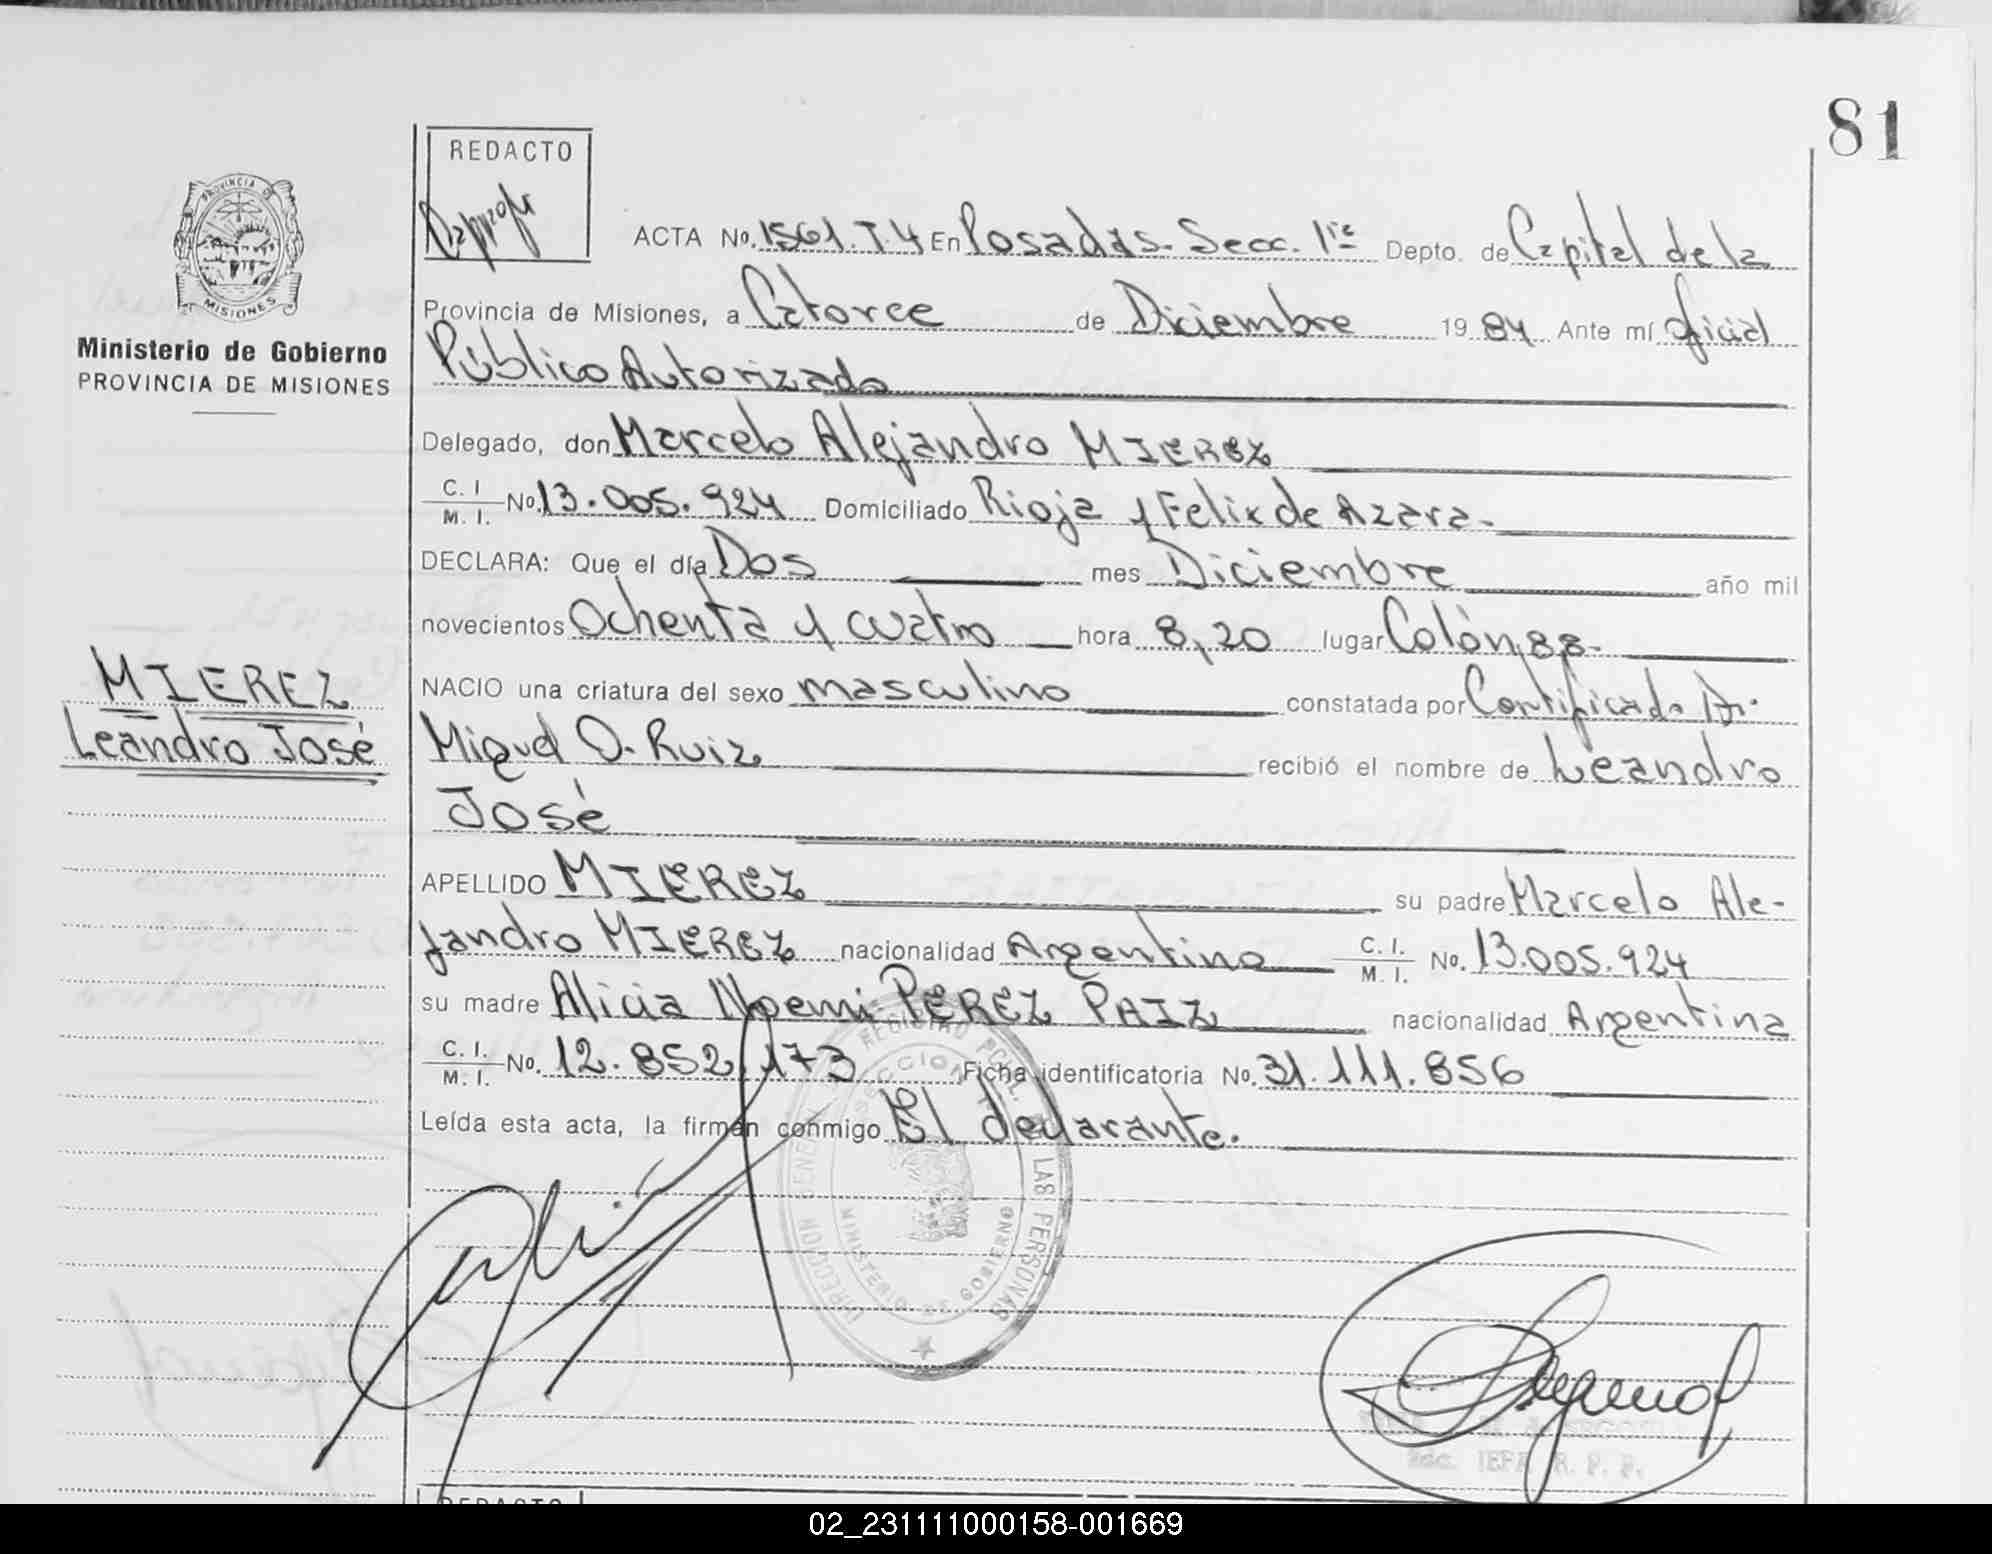 81
REDACTO
PROVINCIA DE
MISIONES
Ministerio de Gobierno
PROVINCIA DE MISIONES
ACTA No. 1561. T.4 En Posadas. Secc. 1ra Depto. de Capital de la
Provincia de Misiones, a Catorce de Diciembre 19 84 Ante mí Oficial
Público Autorizado
Delegado, don Marcelo Alejandro MIEREZ
C. I. M. I. No. 13.005.924 Domiciliado Rioja y Felix de Azara.
DECLARA: Que el día Dos mes Diciembre año mil
novecientos Ochenta y cuatro hora 8,20 lugar Colón 88.
NACIO una criatura del sexo masculino constatada por Certificado Dr.
Miguel O. Ruiz recibió el nombre de Leandro
José
APELLIDO MIEREZ su padre Marcelo Ale-
jandro MIEREZ nacionalidad Argentino C. I. M. I. No. 13.005.924
su madre Alicia Noemi PEREZ PAIZ nacionalidad Argentina
C. I. M. I. No. 12.852.173 Ficha identificatoria No. 31.111.856
Leída esta acta, la firman conmigo El declarante.
MIEREZ
Leandro José
DIRECCION GENERAL REGISTRO PCIAL. DE LAS PERSONAS
MINISTERIO DE GOBIERNO
REDACTO
02_231111000158-001669